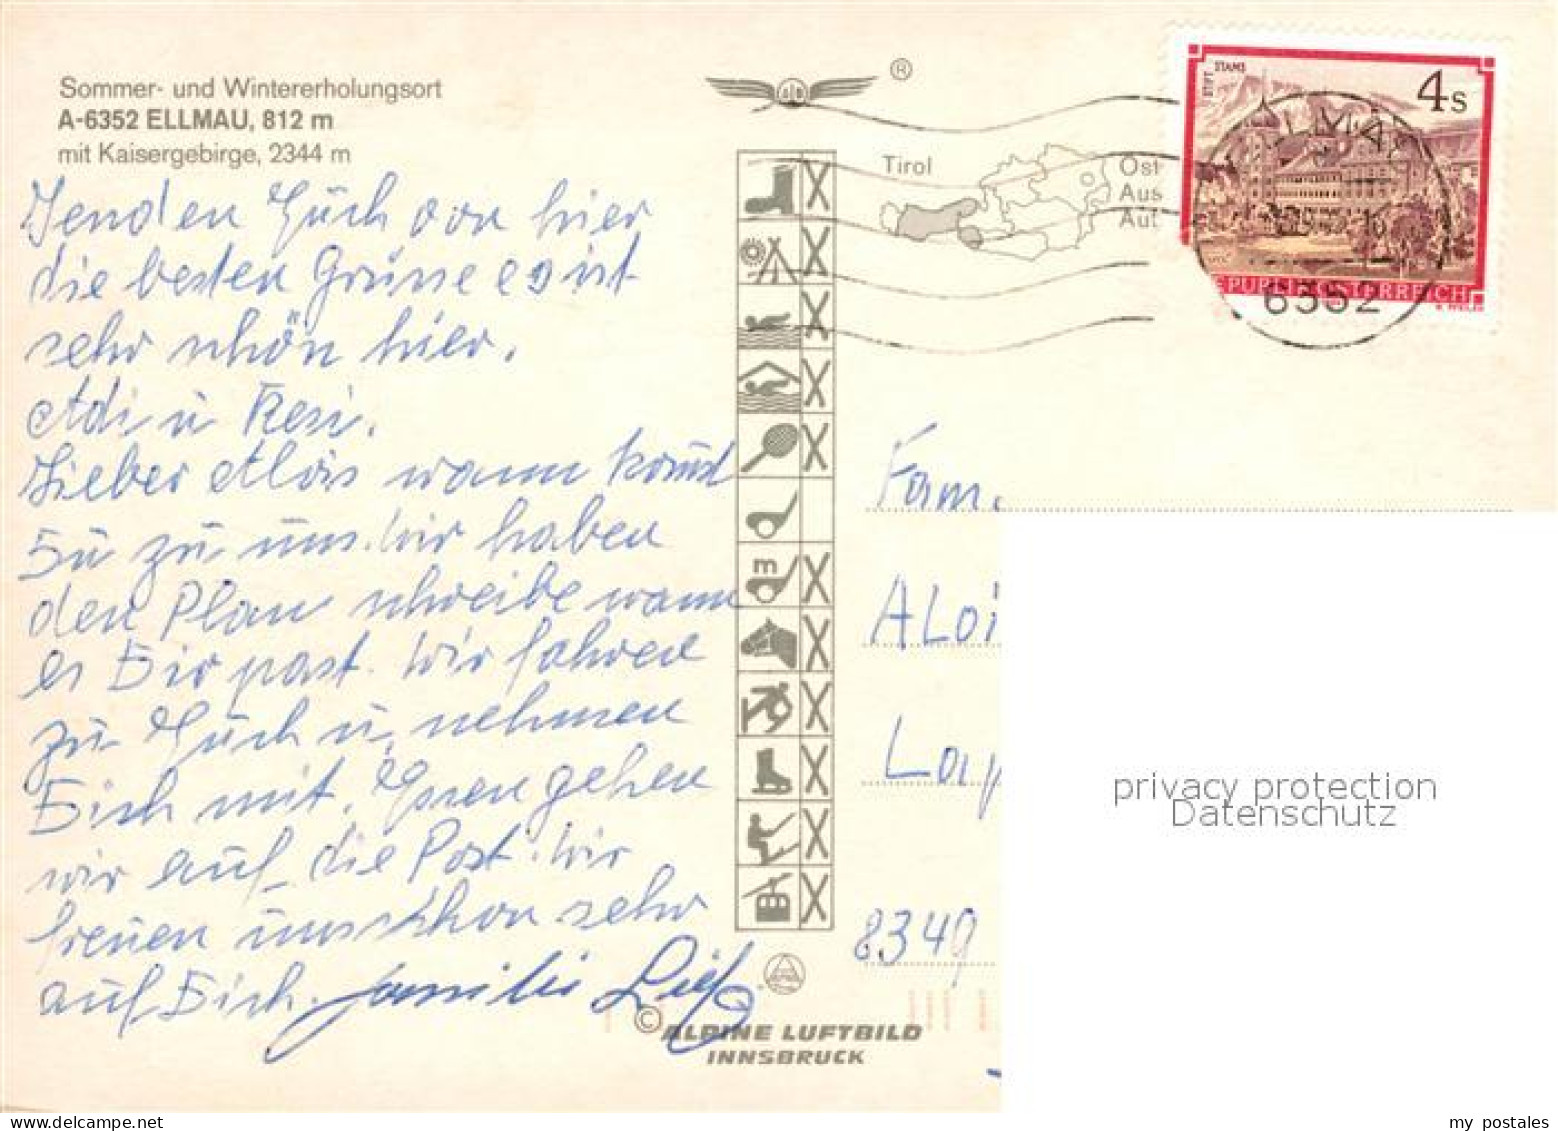 Sommer- und Wintererholungsort
A-6352 ELLMAU, 812 m
mit Kaisergebirge, 2344 m
Senden Euch von hier
die besten Grüsse es ist
sehr schön hier.
Adi u Resi.
Lieber Alois wann komst
Du zu uns. Wir haben
den Plan schreibe wann
es Dir past. Wir fahren
zu Euch u, nehmen
Dich mit. Essen gehen
wir auf die Post. Wir
freuen uns schon sehr
auf Dich. Familie
®
Tirol
Öst
Aus
Aut
m
STIFT STAMS
4s
REPUBLIK ÖSTERREICH
6352
Fam.
ALoi
8349
privacy protection
Datenschutz
© ALPINE LUFTBILD
INNSBRUCK
my postales